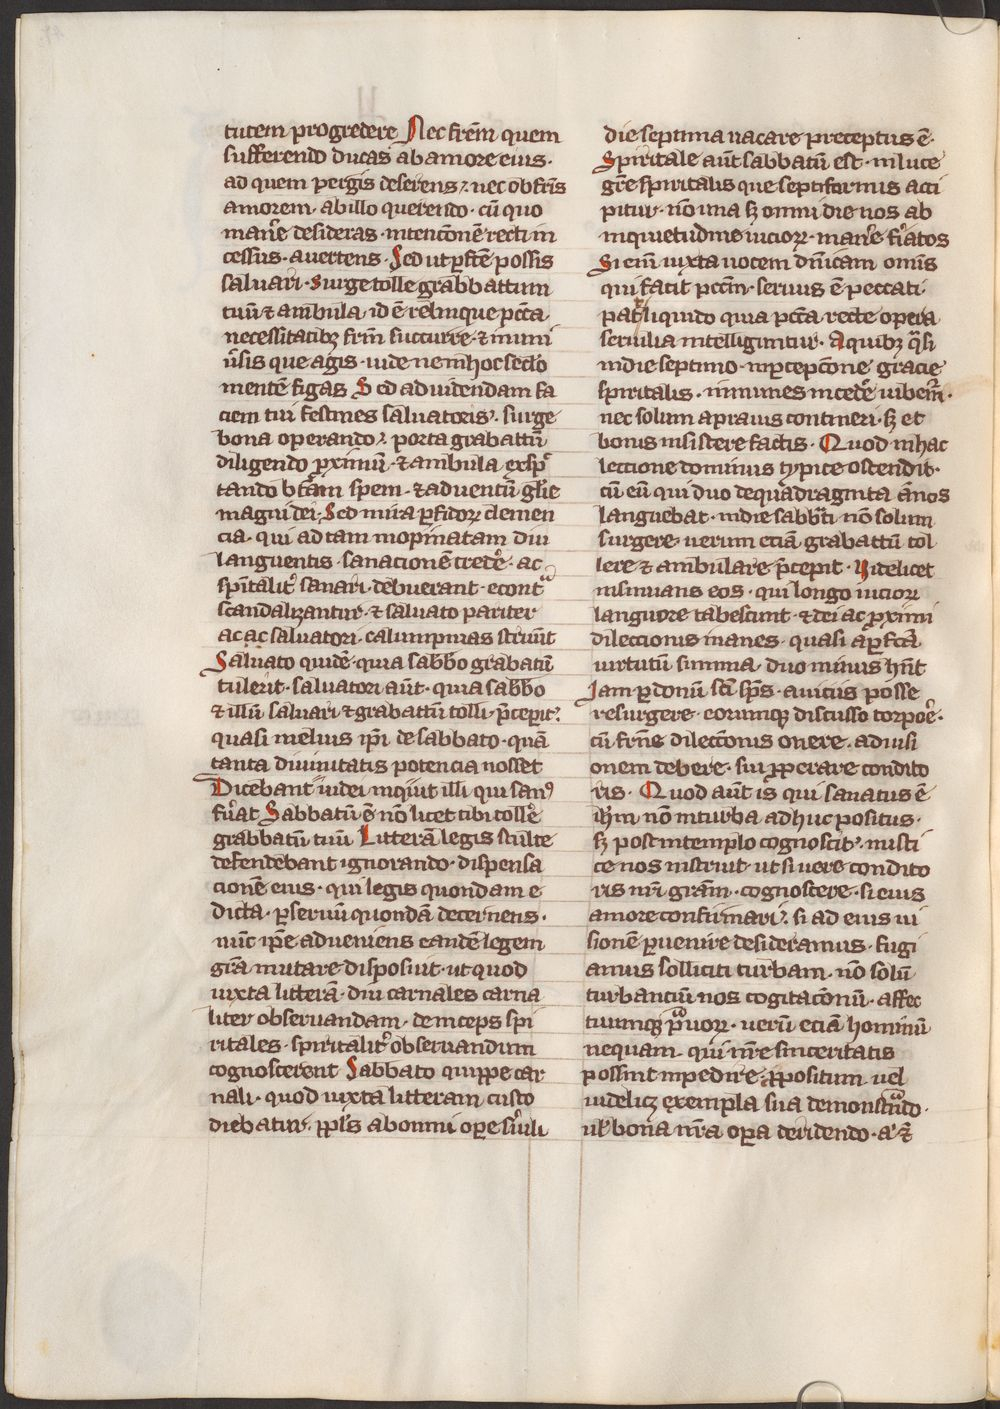 tutem progredere Nec frēm quem
sufferendo ducas ab amore eius·
ad quem pergis deserens· nec ob frīs
amorem· ab illo querendo· cū quo
manere desideras· intencōnē recti in
cessus· auertens· Sed ut ꝑfcē possis
saluari· Surge tolle grabbattum
tuū ⁊ ambula· id ē relinque pctā·
necessitatibꝫ frm̄ succurre· ⁊ in uni
ūsis que agis· uide ne in hoc seclo
mentē figas Sed ad uidendam fa
ciem tui festines saluatoris· surge
bona operando· porta grabattū
diligendo ꝓximū· ⁊ ambula exspc
tando btām spem· ⁊ aduentū glīe
magni dei· Sed mira ꝑfidoꝝ clemen
cia· qui ad tam inopinatam diu
languentis· sanacionē credē· ac
spītalit sanari· debuerant· econtª
scandalizantur· ⁊ saluato pariter
ac ac saluatori· calumpnias struūt
Saluato quidē· quia sabbo grabatū
tulerit· saluatori aūt· quia sabbo
⁊ illū saluari ⁊ grabattū tolli· p̄cepit·
quasi melius ipī de sabbato· quā
tanta diuinitatis potencia nosset
Dicebant iudei inquit illi qui san⁹
fūat Sabbatū ē nō licet tibi tollē
grabbatū tuū Litterā legis stulte
defendebant ignorando· dispensa
cionē eius· qui legis quondam e
dicta· ꝑ seruū quondā decernens·
nūc ipē adueniens eandē legem
grā mutare disposuit· ut quod
iuxta litterā· diu carnales carna
liter obseruandam· deinceps spi
ritales· spiritalit obseruandum
cognoscerent Sabbato quippe car
nali· quod iuxta litteram custo
diebatur· ppls ab omni oꝑe sūili
die septima uacare preceptus ē·
Spiritale aūt sabbatū est· in luce
grē spiritalis que septiformis acci
pitur· nō una sꝫ omni die nos ab
inquietudine uicioꝝ· manē fīatos
Si eīm iuxta uocem dn̄icam omīs
qui facit pccm̄· seruus ē peccati·
pat liquido quia pctā recte opera
seruilia intelliguntur· A quibꝫ qsi
in die septimo· in ꝑcepcōne gracie
spiritalis· inmunes incedē iubem̄·
nec solum a prauis contineri· sꝫ et
bonis insistere factis· Quod in hac
leccione dominus typice ostendit·
cū eū qui duo de quadraginta ānos
languebat· in die sabbti nō solum
surgere· uerum eciā grabattū tol
lere ⁊ ambulare p̄cepit· Videlicet
insinuans eos· qui longo uicioꝝ
languore tabescunt· ⁊ dei ac ꝓximi
dileccionis inanes· quasi a ꝑfcā
uirtutū summa· duo minus hn̄t
Iam ꝑ donū scī spc̄s· a uiciis posse
resurgere· eorumqꝫ discusso torpoē·
cū frn̄e dilecconis onere· ad uisi
onem debere· sui ꝓperare condito
ris· Quod aūt is qui sanatus ē
ihm̄ nō in turba adhuc positus·
sꝫ post in templo cognoscit· misti
ce nos instruit· ut si uere condito
ris nrī grām· cognoscere· si eius
amore confirmari· si ad eius ui
sionē ꝑuenire desideramus· fugi
amus solliciti turbam· nō solū
turbanciū nos cogitacōnū· affec
tuumqꝫ pªuoꝝ· uerū eciā hominū
nequam· qui nrē sinceritatis
possint inpedire ꝓpositum· uel
uidelicꝫ exempla sua demonstrªdo·
ul bona nrā oꝑa deridendo· a ⁊